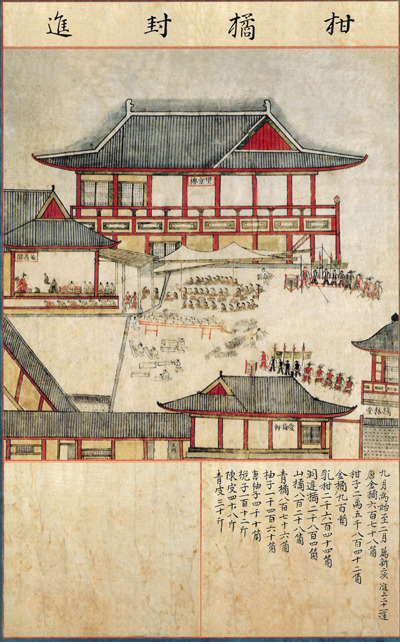 柑橘封進
望京樓
橘林堂
九月爲始至二月薦新二次進上二十運
唐金橘六百七十八箇
柑子二萬五千八百四十二箇
金橘九百箇
乳柑二千六百四十四箇
洞庭橘二千八百四箇
山橘八百二十八箇
青橘八百七十六箇
柚子一千四百六十箇
唐柚子四千十箇
梔子一百十二斤
陳皮四十八斤
青皮三十斤